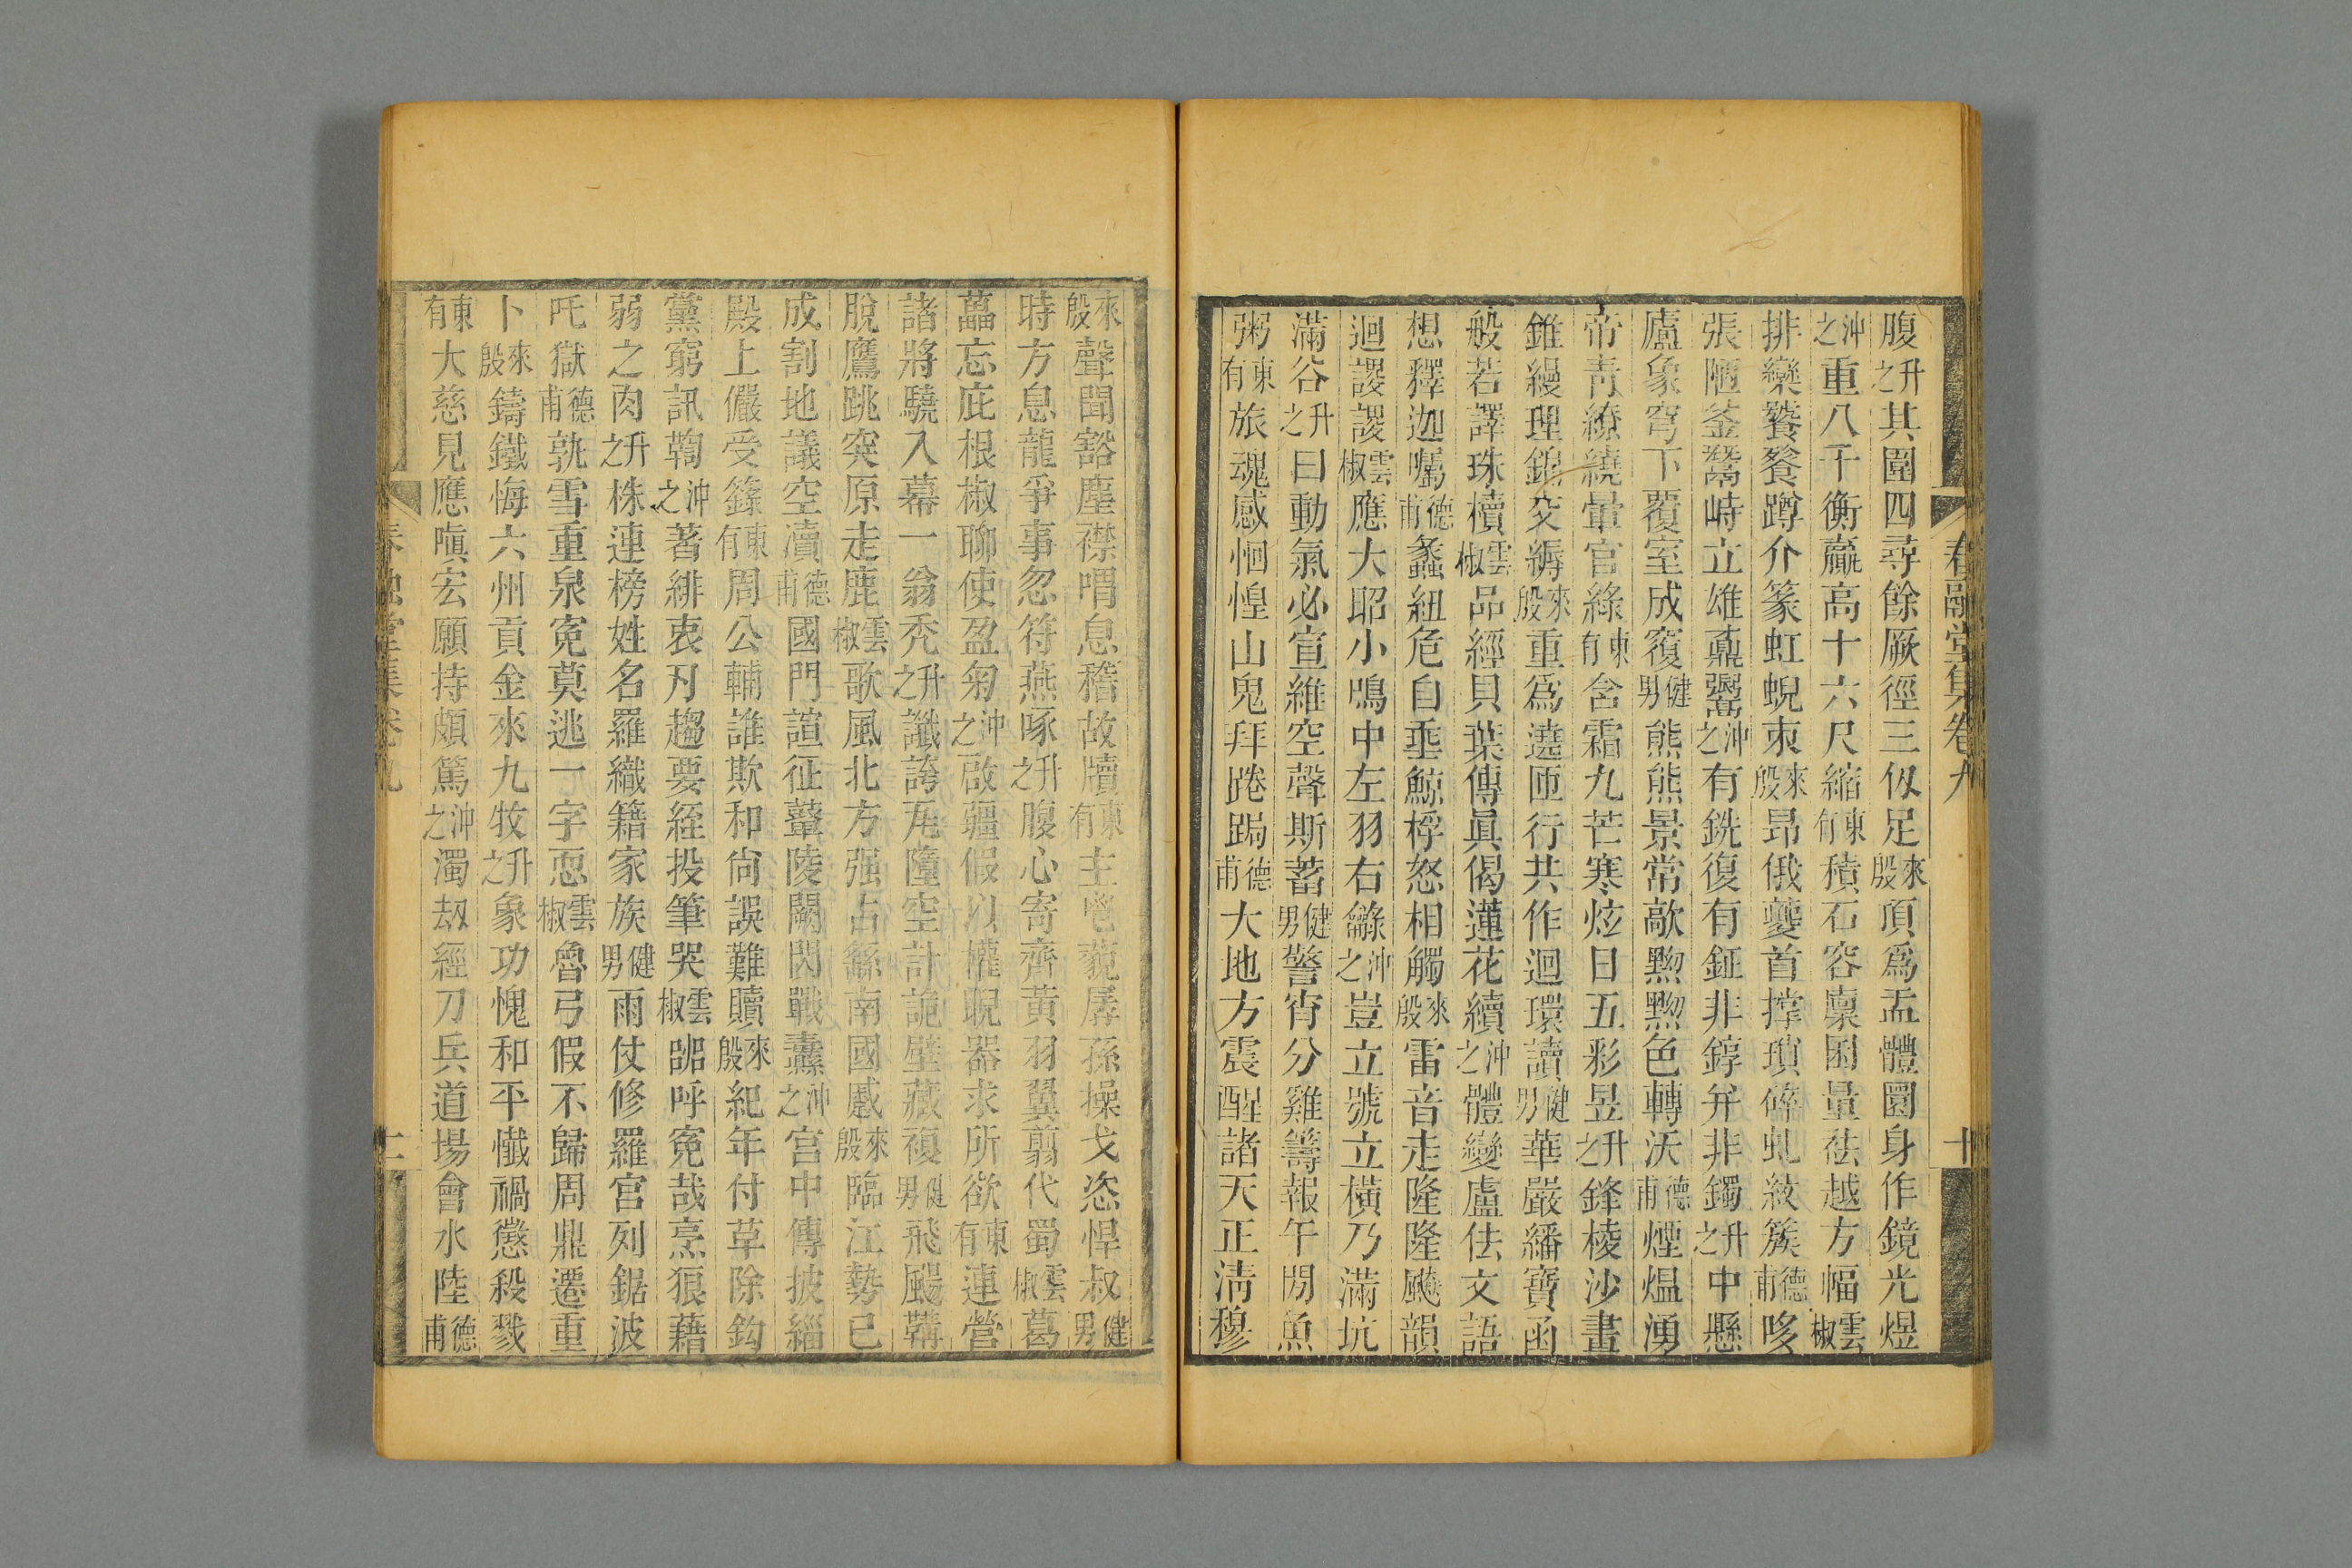 腹升之其圍四尋餘厥徑三仭足來殷頂爲盂體圜身作鏡光煜
沖之重八千衡羸高十六尺縮東有積石容廩囷量祛越方幅雲椒
排欒饕餮蹲介篆虹蜺朿來殷昂俄夔首撐瑣碎虬紋簇德甫哆
張陋釜鬵峙立雄鼒鬺沖之有銑復有鉦非錞幷非鐲升之中懸
廬象穹下覆室成䆳健男熊熊景常歊黝黝色轉沃德甫煙熅湧
帝青繚繞暈宫綠東有含霜九芒寒炫日五彩昱升之鋒棱沙畫
錐縵理錦交縟來殷重爲遶匝行共作迴環讀健男華嚴繙寶函
般若譯珠櫝雲椒品經貝葉傳眞偈蓮花續沖之體變盧佉文語
想釋迦囑德甫蠡紐危自垂鯨桴怒相觸來殷雷音走隆隆颷韻
迴謖謖雲椒應大眧小鳴中左羽右龣沖之豈立號立橫乃滿坑
滿谷升之日動氣必宣維空聲斯蓄健男警宵分雞籌報午閒魚
粥東有旅魂感恛惶山鬼拜踡跼德甫大地方震醒諸天正淸穆
春融堂集卷九
十
來殷聲聞豁塵襟喟息稽故牘東有主乸藐孱孫操戈恣悍叔健男
時方息龍爭事忽符燕啄升之腹心寄齊黃羽翼翦代蜀雲椒葛
藟忘庇根椒聊使盈匊沖之啟疆假以權睨器求所欲東有連營
諸將驍入幕一翁禿升之讖誇瓦墮空計詭壁藏複健男飛颺鞲
脫鷹跳突原走鹿雲椒歌風北方强占繇南國蹙來殷臨江勢已
成割地議空瀆德甫國門諠征鼙陵闕閃戰纛沖之宫中傳披緇
殿上儼受籙東有周公輔誰欺和尙誤難贖來殷紀年付革除鈎
黨窮訊鞫沖之著緋衷刃趨要絰投筆哭雲椒踣呼冤哉烹狼藉
弱之肉升之株連榜姓名羅織籍家族健男雨仗修羅宫列鋸波
吒獄德甫孰雪重泉冤莫逃一字惡雲椒魯弓假不歸周鼎遷重
卜來殷鑄鐵悔六州貢金來九牧升之象功愧和平懺禍懲殺戮
東有大慈見應嗔宏願持頗篤沖之濁刼經刀兵道場會水陸德甫
春融堂集卷九